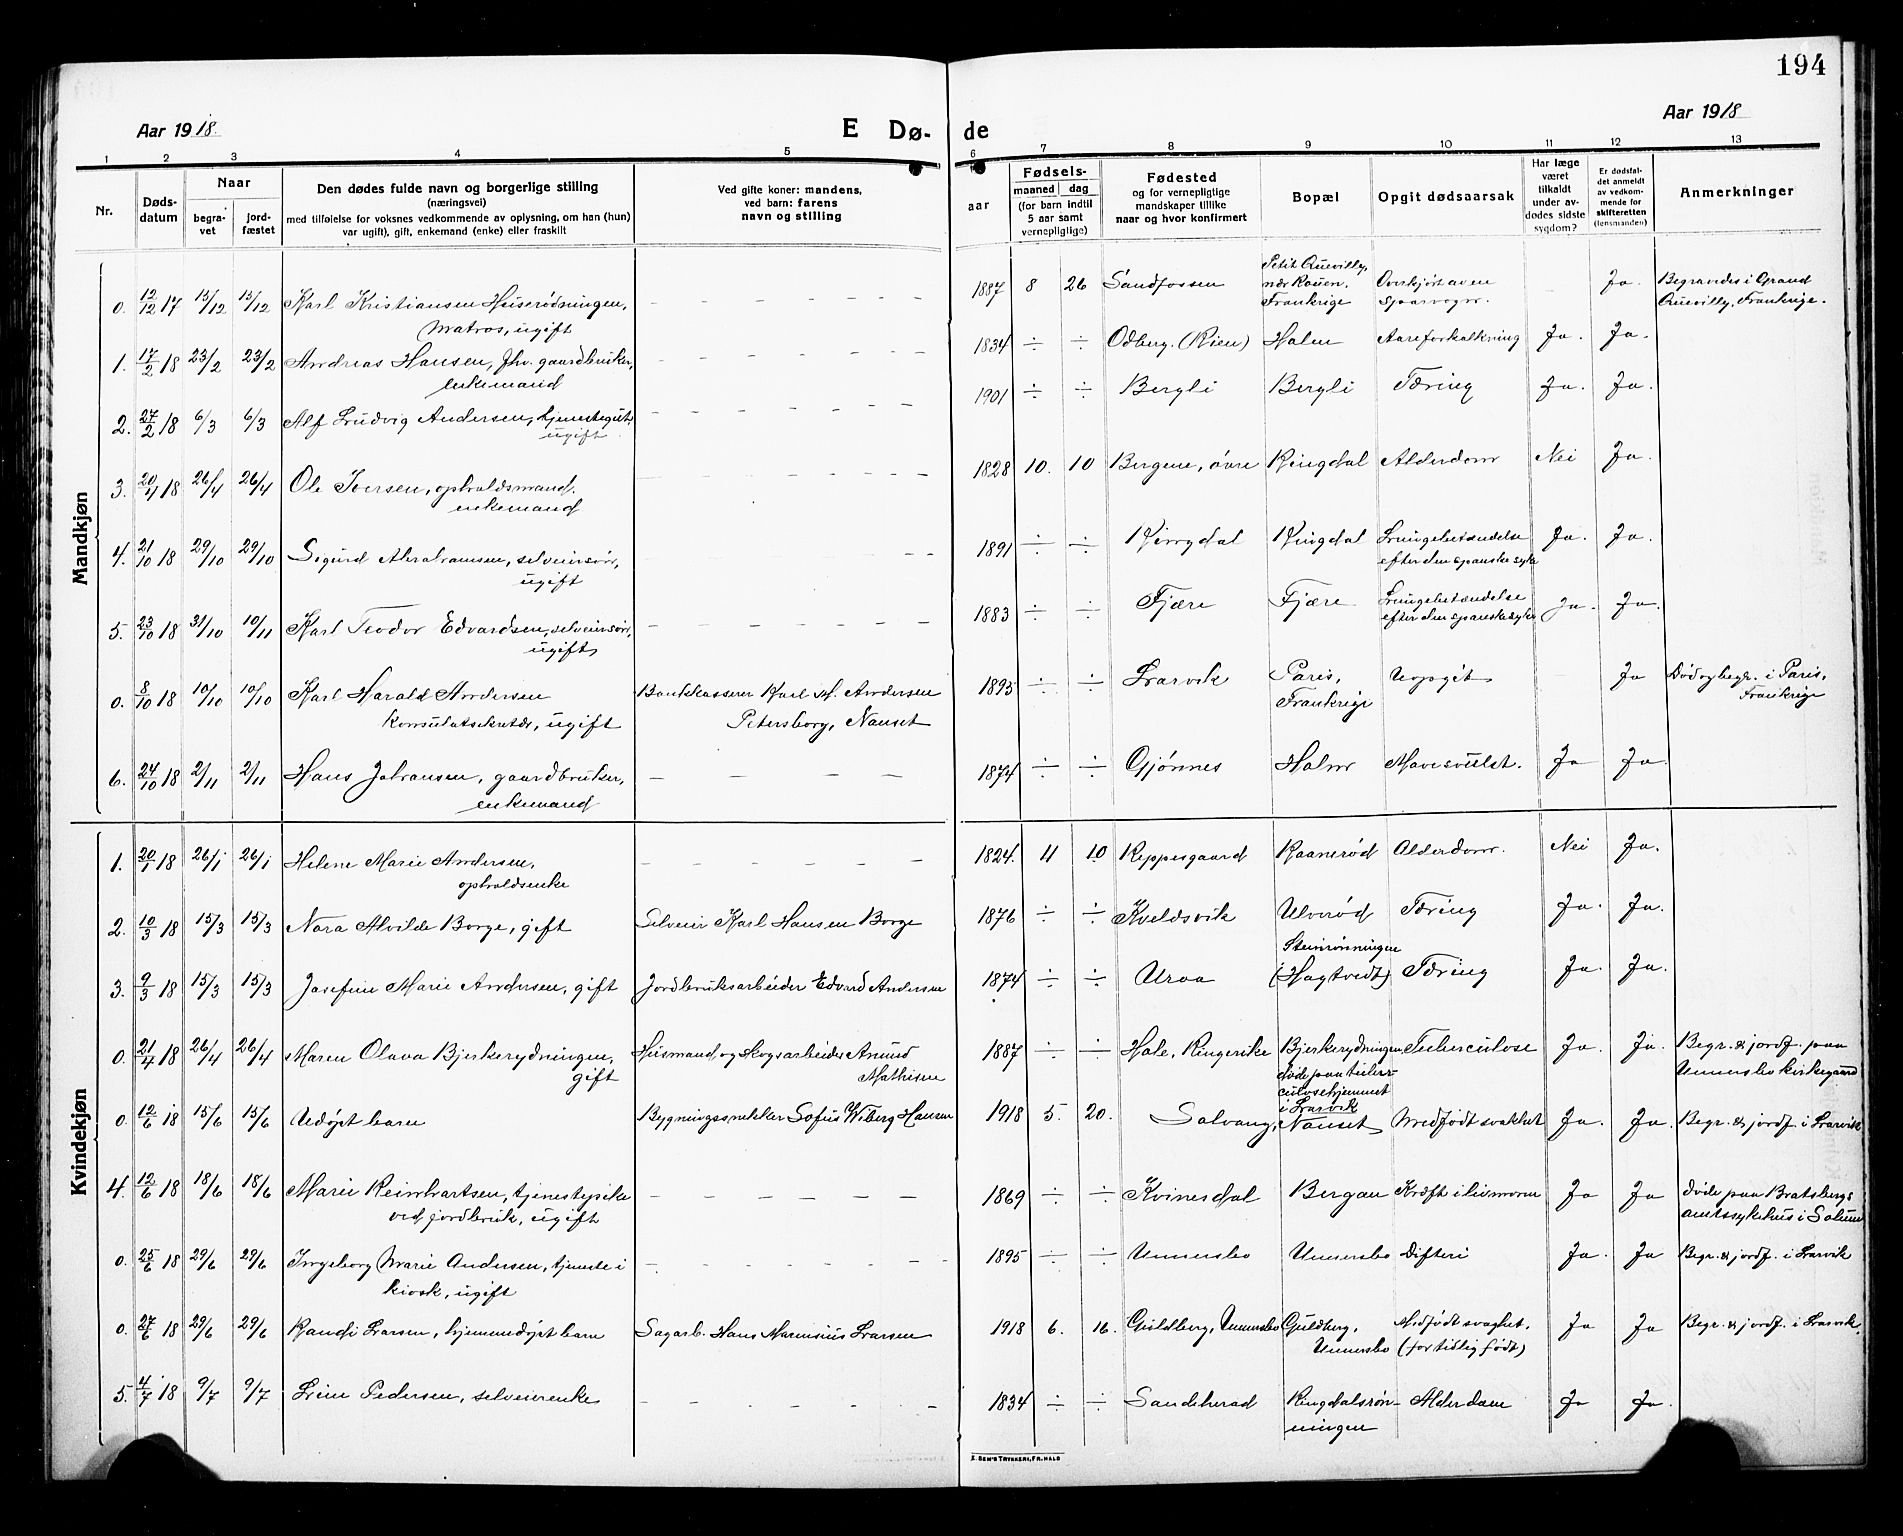 194
Aar 1918.
E Dø-
de
Aar 1918
1 2 3 4 5 6 7 8 9 10 11 12 13
Nr.
Døds-
datum
Naar
begra-
vet
jord-
fæstet
Den dødes fulde navn og borgerlige stilling
(næringsvei)
med tilføielse for voksnes vedkommende av oplysning, om han (hun)
var ugift), gift, enkemand (enke) eller fraskilt
Ved gifte koner: mandens,
ved barn: farens
navn og stilling
Fødsels-
aar
maaned dag
(for barn indtil
5 aar samt
vernepligtige)
Fødested
og for vernepligtige
mandskaper tillike
naar og hvor konfirmert
Bopæl
Opgit dødsaarsak
Har læge
været
tilkaldt
under av-
dødes sidste
sygdom?
Er dødsfal-
det anmeldt
av vedkom-
mende for
skifteretten
(lensmanden)
Anmerkninger
Mandkjøn
0. 12/12 17 15/12 15/12 Karl Kristiansen Huserødningen,
matros, ugift
1887 8 26 Sandfossen
Petit Quevilly,
nær Rouen,
Frankrige
Overkjørt av en
sporvogn.
Ja.
Begravedes i Grand
Quevilly, Frankrige.
1. 17/2 18 23/2 23/2 Andreas Hansen, fhv. gaardbruker,
enkemand
1834 ÷ ÷ Odberg. (Kien) Holm Aareforkalkning Ja. Ja.
2. 27/2 18 6/3 6/3 Alf Ludvig Andersen, tjenestegut,
ugift
1901 ÷ ÷ Bergli Bergli Tæring Ja. Ja.
3. 20/4 18 26/4 26/4 Ole Iversen, opholdsmand.
enkemand
1828 10. 10 Bergene, øvre Ringdal Alderdom Nei Ja.
4. 21/10 18 29/10 29/10 Sigurd Abrahamsen, selveiersøn,
ugift
1891 ÷ ÷ Ringdal Ringdal Lungebetændelse
efter den spanske syke
Ja. Ja.
5. 23/10 18 31/10 10/11 Karl Teodor Edvardsen, selveiersøn,
ugift
1883 ÷ ÷ Fjære Fjære Lungebetændelse
efter den spanske syke
Ja. Ja.
0. 8/10 18 10/10 10/10 Karl Harald Andersen
konsulatsekretær, ugift
Bankkasserer Karl H. Andersen
Petersborg, Nanset
1895 ÷ ÷ Larvik Paris,
Frankrige
Uopgit Ja
Død og begr. i Paris,
Frankrige
6. 24/10 18 2/11 2/11 Hans Johansen, gaardbruker,
enkemand
1874 ÷ ÷ Gjønnes Holm Mavesvulst. Ja Ja.
Kvindekjøn
1. 20/1 18 26/1 26/1 Helene Marie Andersen,
opholdsenke
1824. 11 10 Reppesgaard Raanerød Alderdom. Nei Ja.
2. 10/3 18 15/3 15/3 Nora Alvilde Borge, gift Selveier Karl Hansen Borge
1876 ÷ ÷ Kveldsvik Ulverød Tæring Ja. Ja.
3. 9/3 18 15/3 15/3 Josefine Marie Andersen, gift Jordbruksarbeider Edvard Andersen
1874 ÷ ÷ Uroa Steinrønningen
(Hagtvedt) Tæring Ja. Ja.
0. 21/4 18 26/4 26/4 Maren Olava Bjerkerydningen,
gift
Husmand og skogsarbeider Anund
Mathisen
1887 ÷ ÷ Hole, Ringerike Bjerkerydningen,
døde paa tuber-
culosehjemmet
i Larvik
Tuberculose Ja. Ja.
Begr. & jordf. paa
Unnersbo kirkegaard
0. 12/6 18 15/6 15/6 Udøpt barn Bygningssnekker Sofus Wiberg Hansen
1918 5. 20. Solvang, Nanset Medfødt svakhet Ja. Ja. Begr. & jordf. i Larvik
4. 12/6 18 18/6 18/6 Marie Reinhartsen, tjenestepike
ved jordbruk, ugift
1869 ÷ ÷ Kvinesdal Bergan Kræft i livmoren Ja Ja
Døde paa Bratsbergs
amtssykehus i Solum
0. 25/6 18 29/6 29/6 Ingeborg Marie Andersen, tjeneste i
kiosk, ugift
1895 ÷ ÷ Unnersbo Unnersbo Difteri Ja. Ja Begr. & jordf. i Larvik
0. 27/6 18 29/6 29/6 Randi Larsen, hjemmedøpt barn Sagarb. Hans Marensius Larsen
1918 6. 16. Guldberg, Unnersbo Guldberg,
Unnersbo
Medfødt svaghet.
(for tidlig født)
Ja Ja Begr. & jordf. i Larvik.
5 4/7 18 9/7 9/7 Line Pedersen, selveierenke
1834 ÷ ÷ Sandeherad Ringdalsrøn-
ningen
Alderdom Ja Ja.
E. SEM'S TRYKKERI, FR.HALD